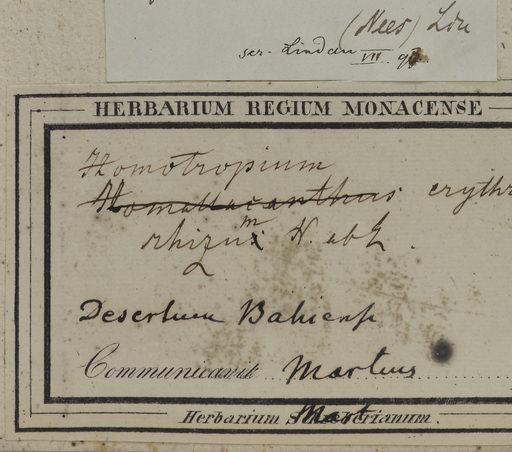 (Nees) Ldu
scr. Lindau VII. 9
HERBARIUM REGIUM MONACENSE
Homotropium
Homallacanthus erythr
rhizum N. ab E.
Desertum Bahiense
Communicavit Martius
Herbarium Mart